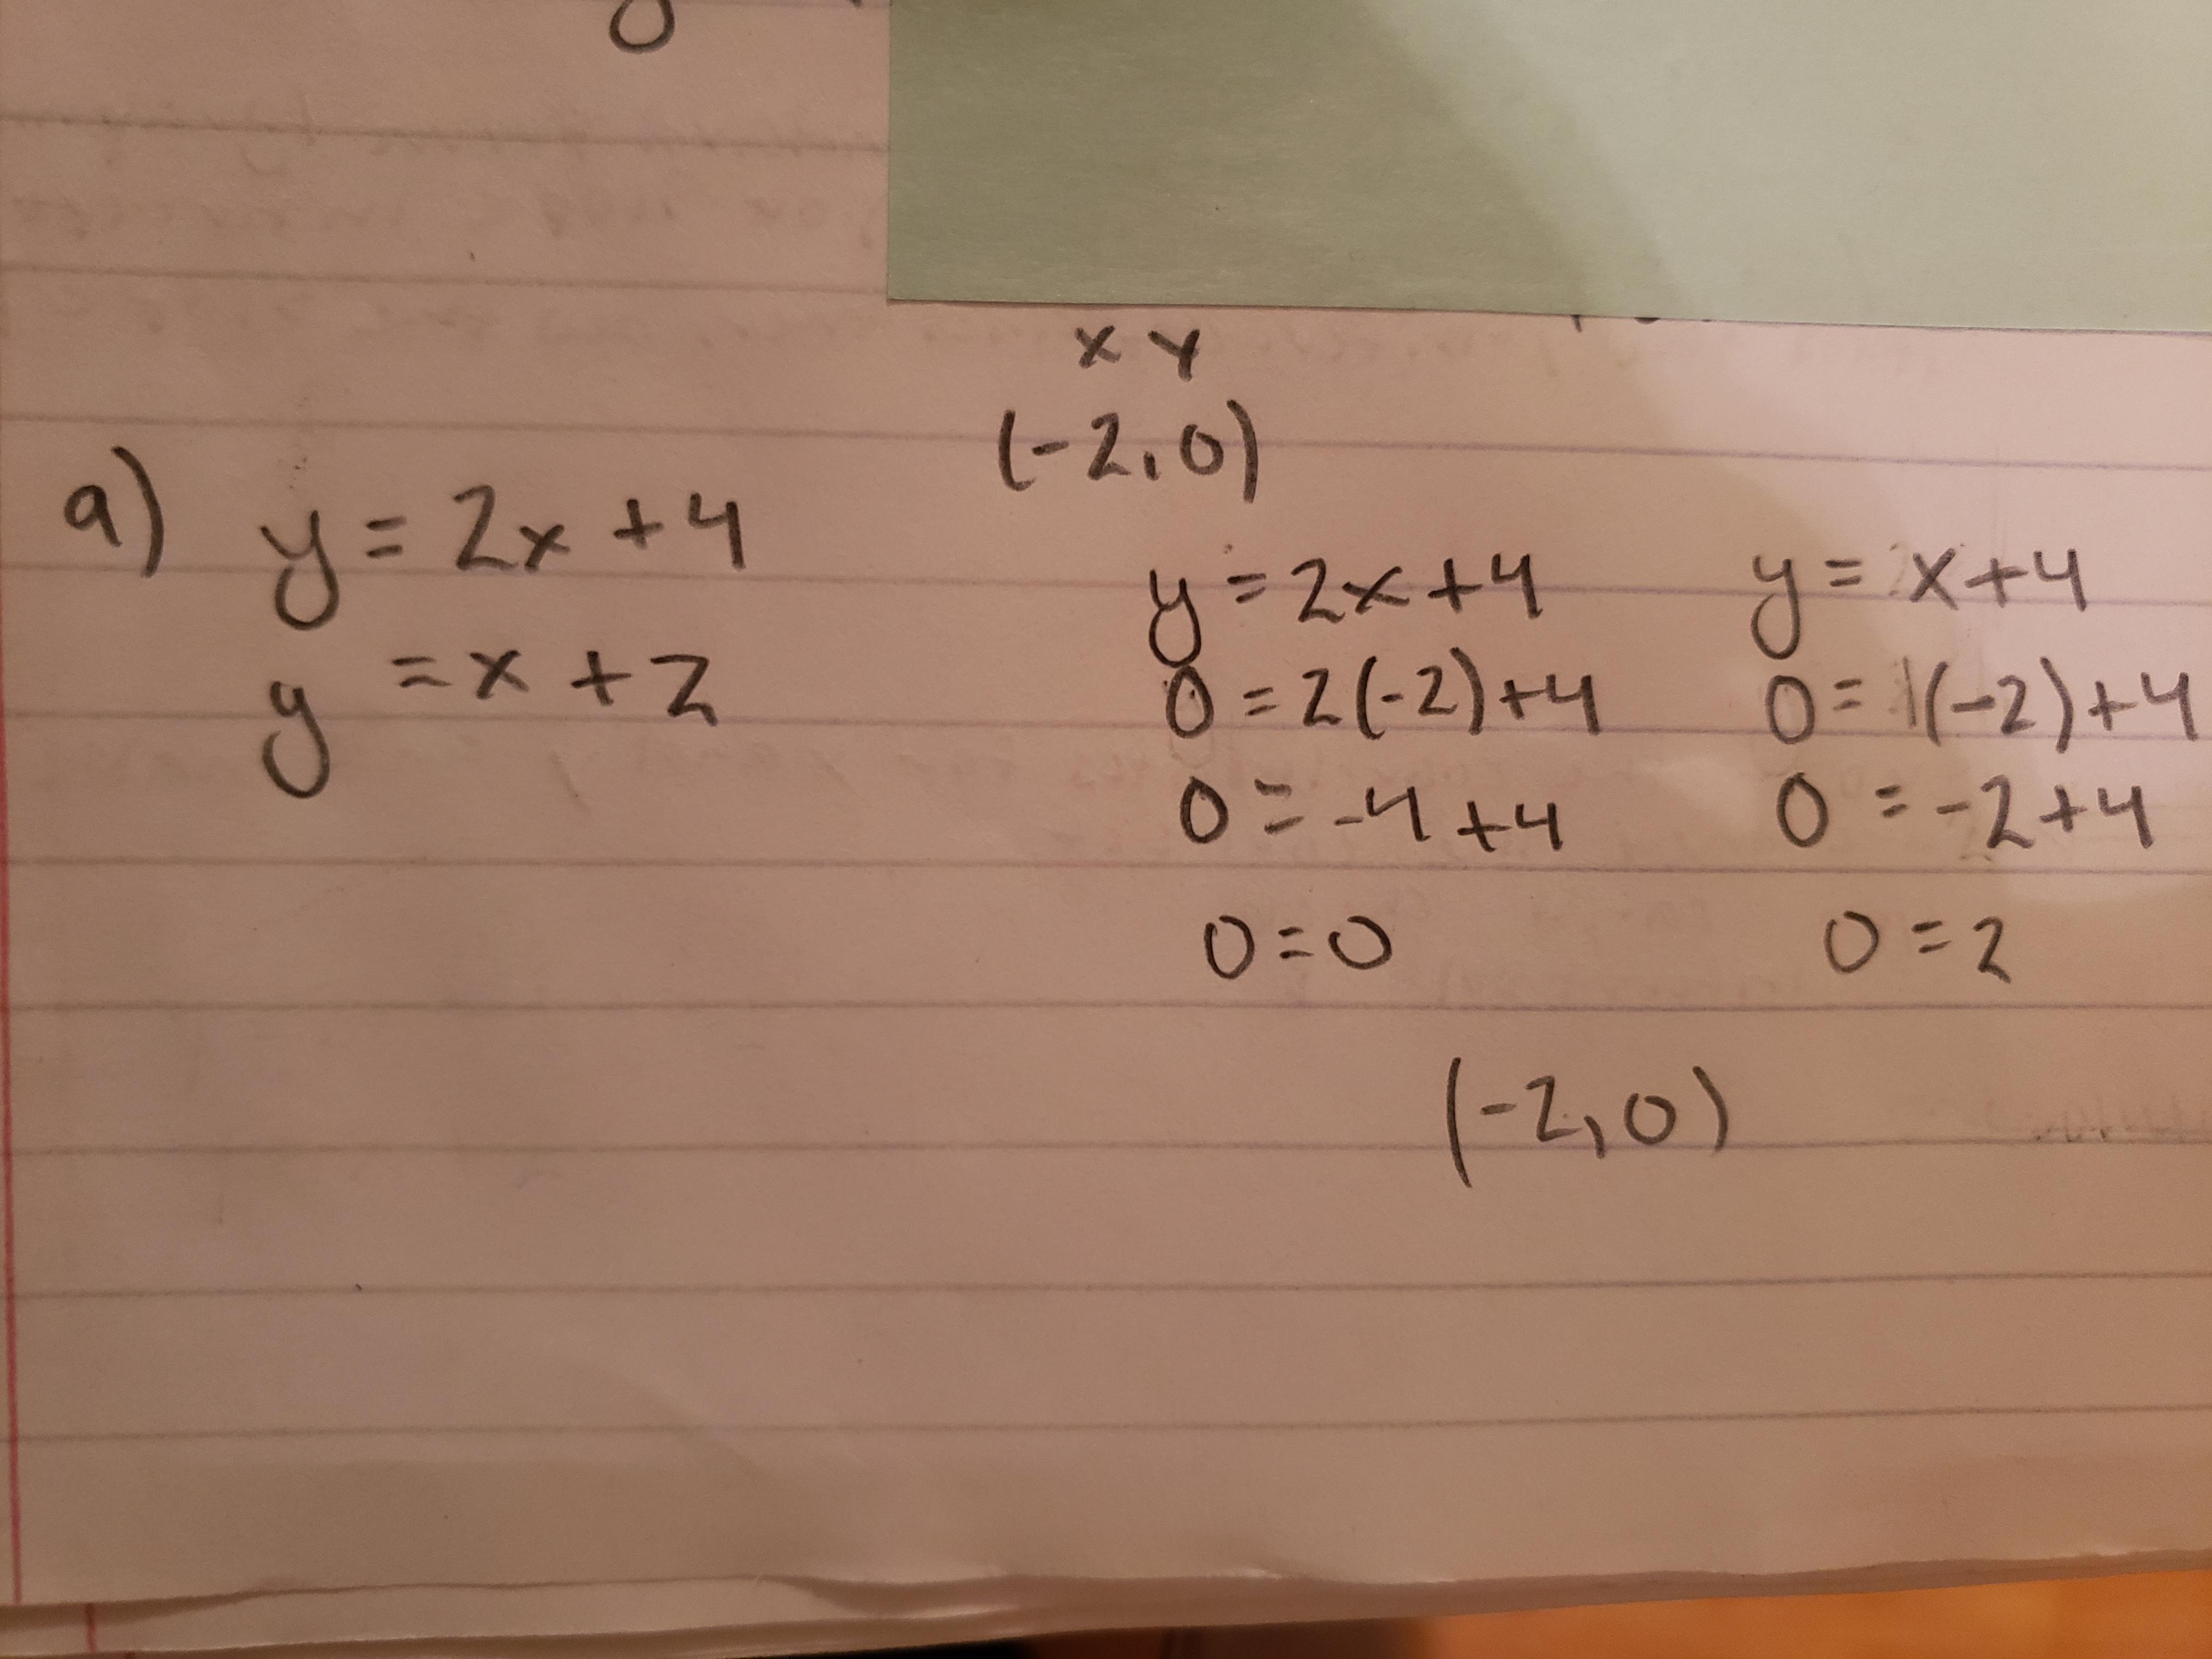 x y
(-2,0)
a) y = 2x + 4
y = x + 2
y = 2x + 4
0 = 2(-2) + 4
0 = -4 + 4
0 = 0
y = x + 4
0 = 1(-2) + 4
0 = -2 + 4
0 = 2
(-2,0)